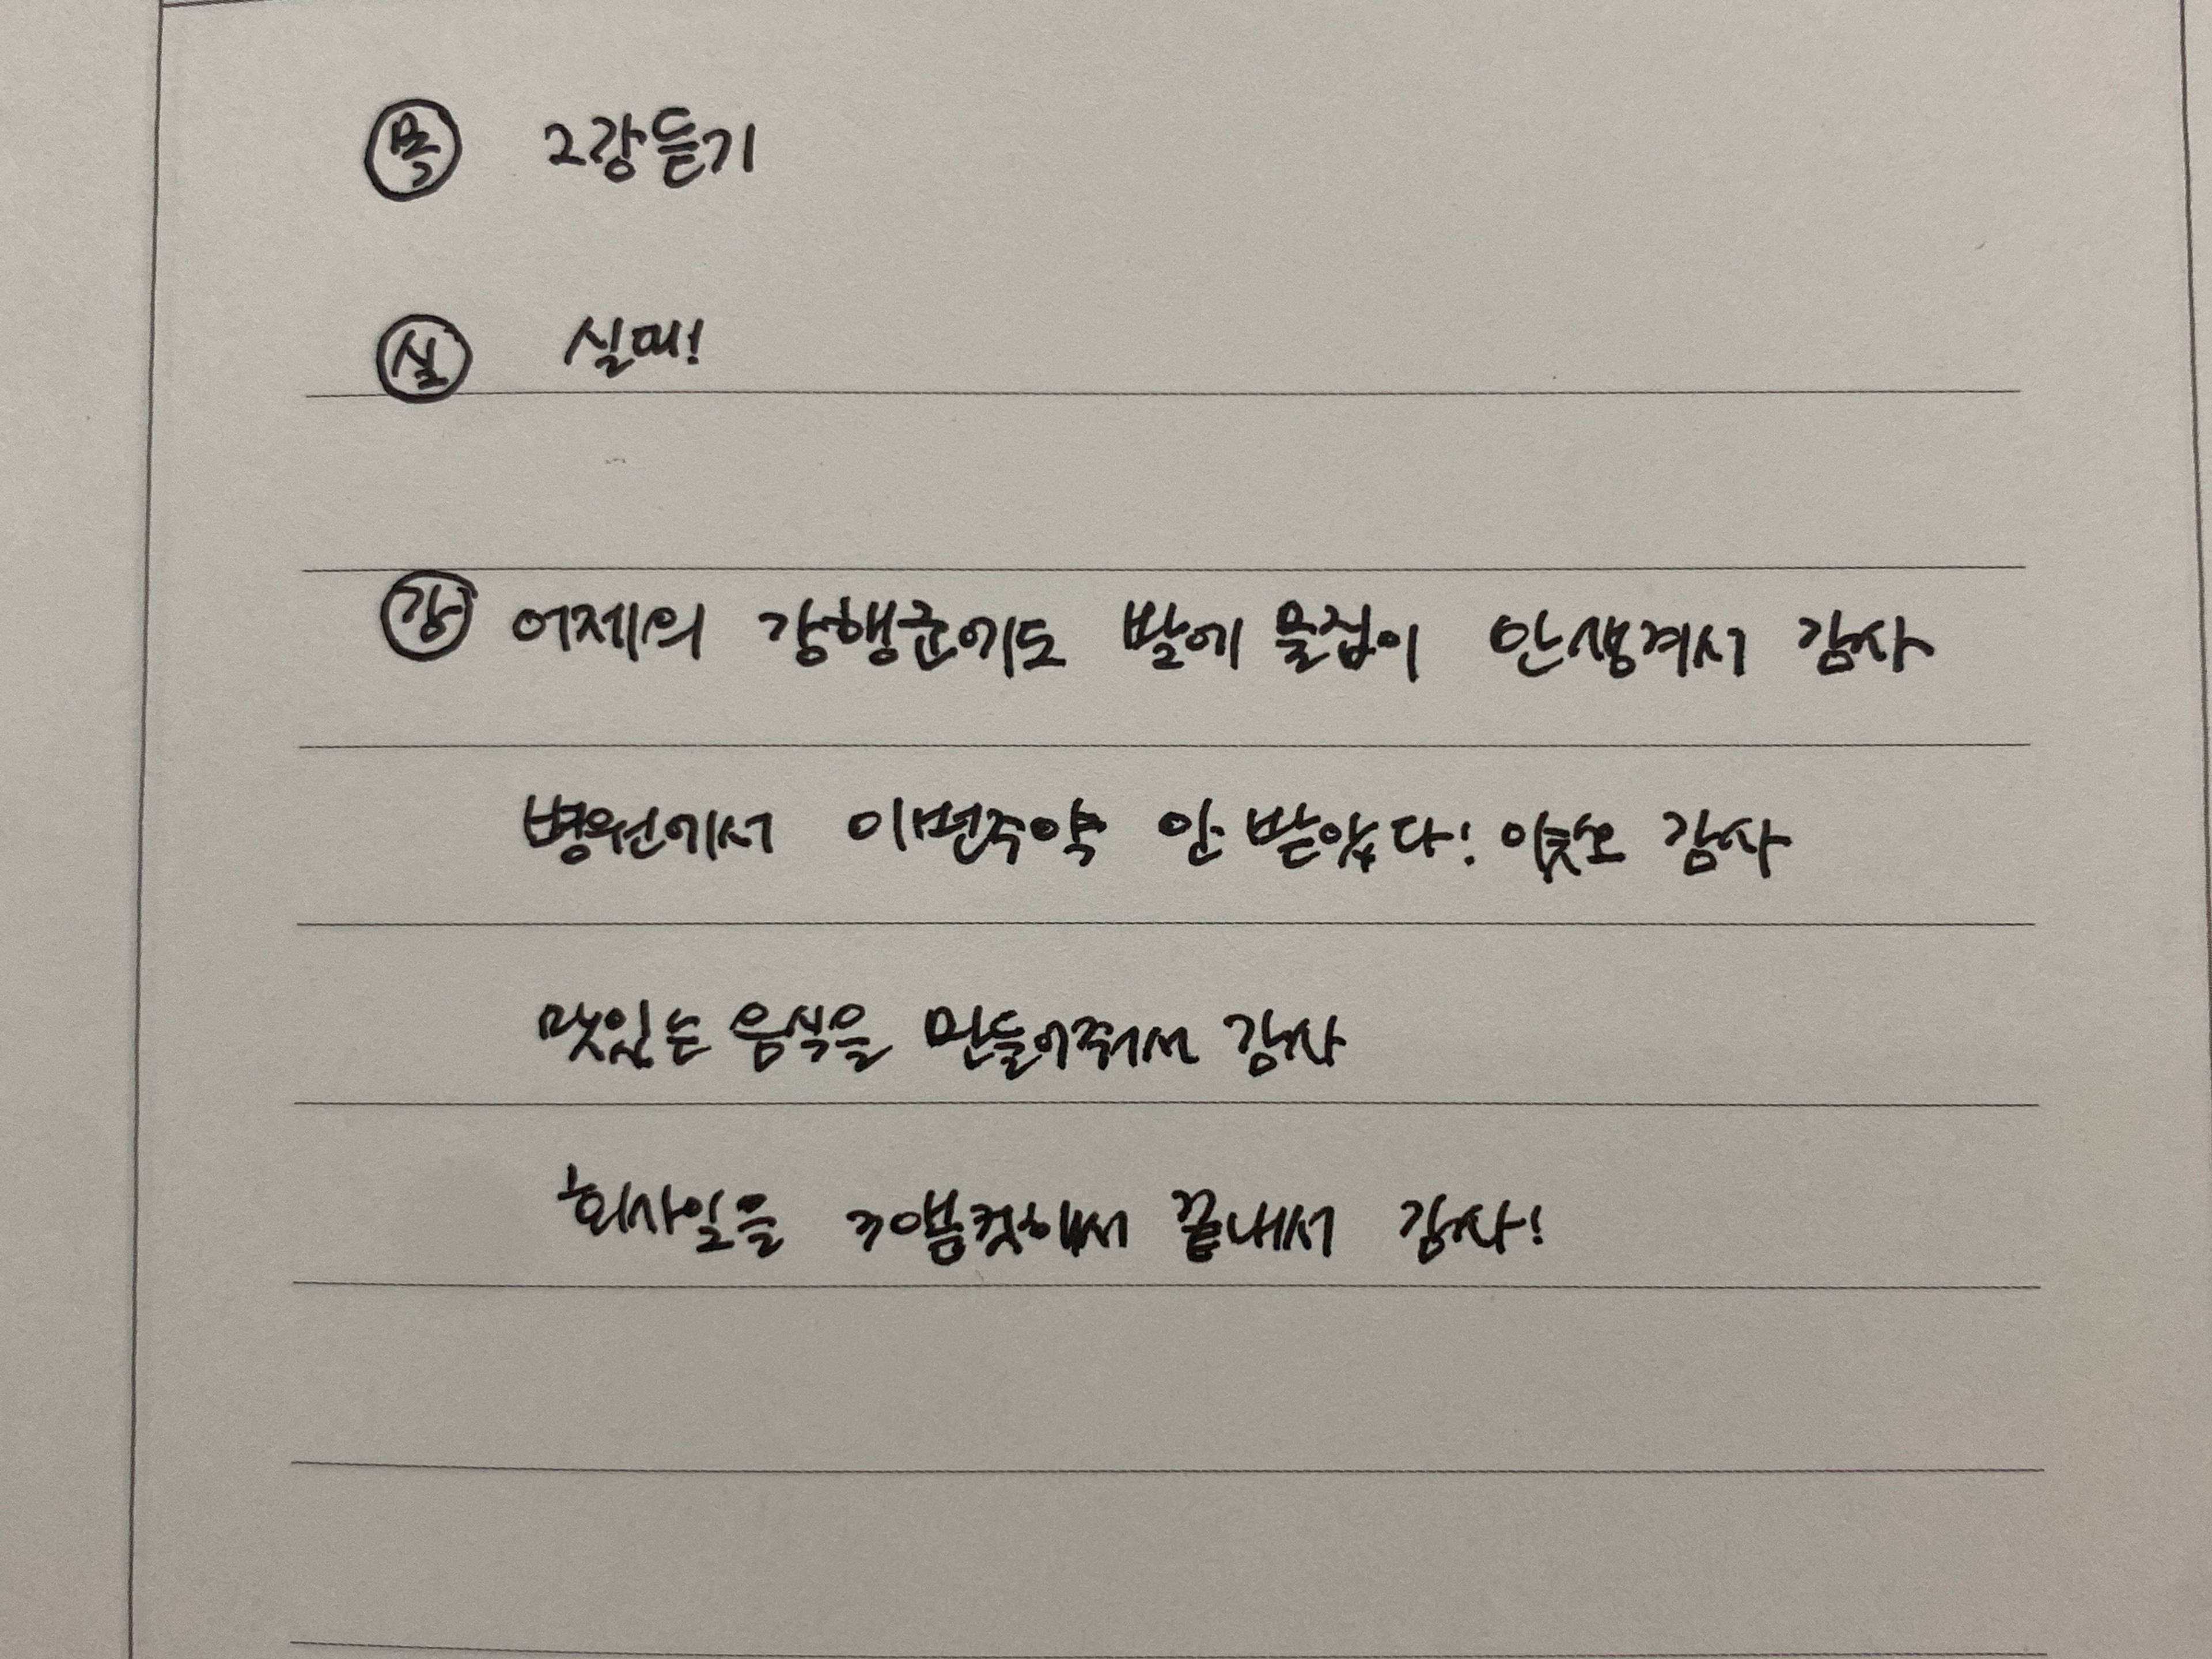 목 2강듣기
실 실패!
감 어제의 강행군에도 발에 물집이 안생겨서 감사
병원에서 이번주약 안 받았다! 감사
맛있는 음식을 만들어줘서 감사
회사일을 해서 끝내서 감사!